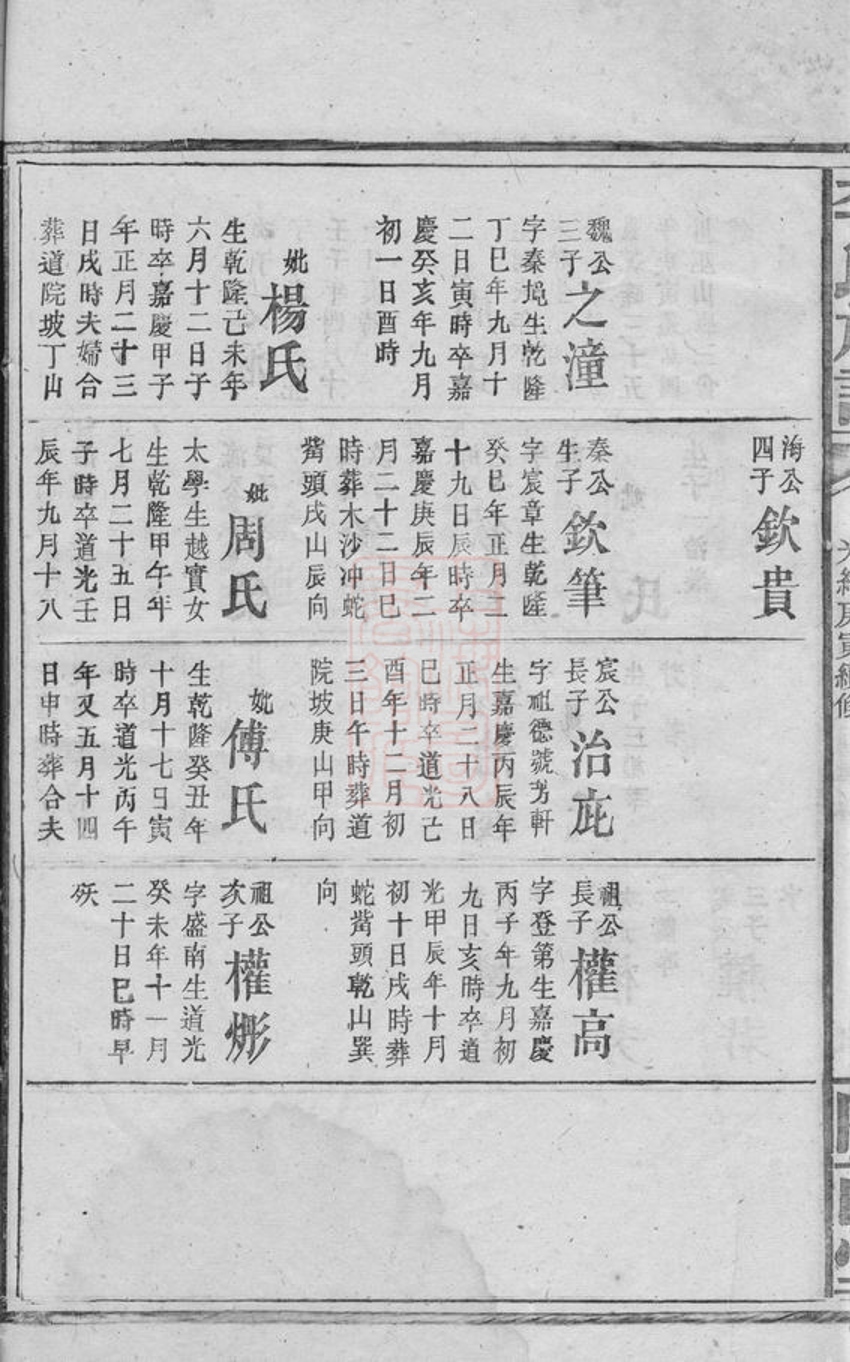 魏公
三子
之潼
字秦塢生乾隆
丁巳年九月十
二日寅時卒嘉
慶癸亥年九月
初一日酉時
妣
楊氏
生乾隆己未年
六月十二日子
時卒嘉慶甲子
年正月二十三
日戌時夫婦合
葬道院坡丁山
海公
四子
欽貴
秦公
生子
欽筆
字宸章生乾隆
癸巳年正月二
十九日辰時卒
嘉慶庚辰年二
月二十二日巳
時葬木沙冲蛇
觜頭戌山辰向
妣
周氏
太學生越實女
生乾隆甲午年
七月二十五日
子時卒道光壬
辰年九月十八
宸公
長子
治庇
字祖德號芳軒
生嘉慶丙辰年
正月二十八日
巳時卒道光己
酉年十二月初
三日午時葬道
院坡庚山甲向
妣
傅氏
生乾隆癸丑年
十月十七日寅
時卒道光丙午
年又五月十四
日申時葬合夫
祖公
長子
權高
字登第生嘉慶
丙子年九月初
九日亥時卒道
光甲辰年十月
初十日戌時葬
蛇觜頭乾山巽
向
祖公
次子
權彨
字盛南生道光
癸未年十一月
二十日巳時早
殀